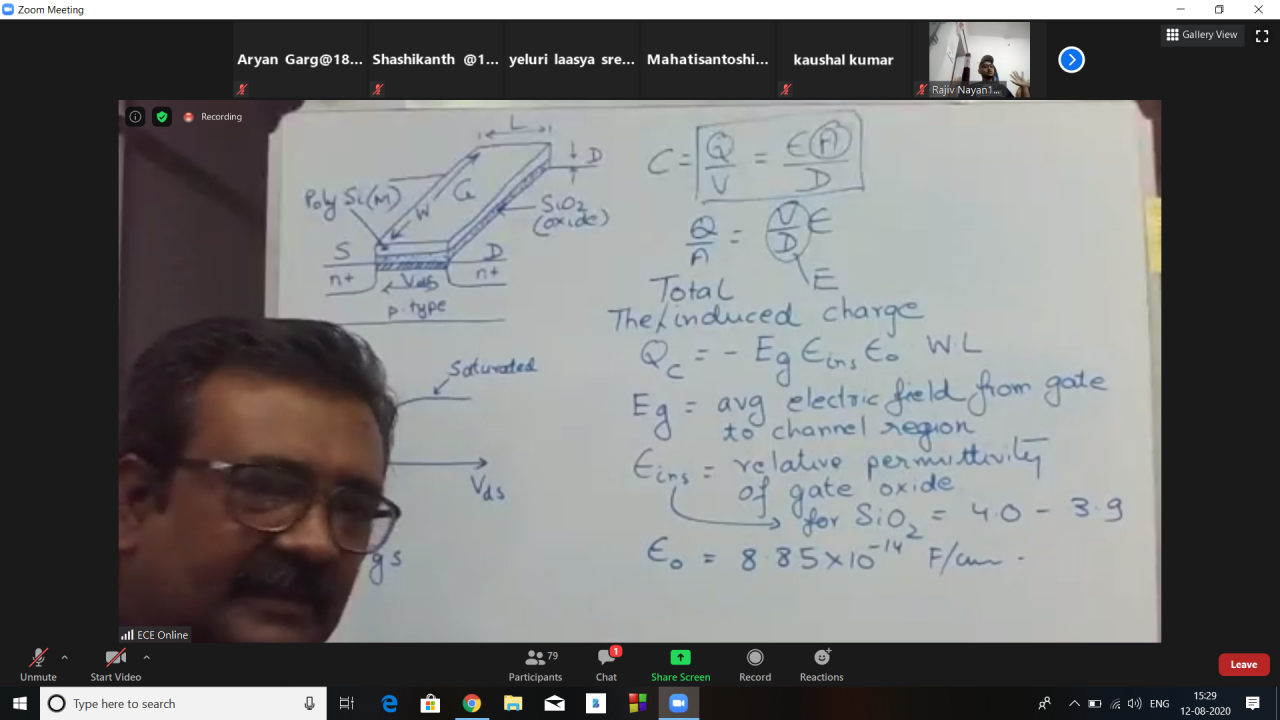 Zoom Meeting
Gallery View
Aryan Garg@18...
Shashikanth @1...
yeluri laasya sre...
Mahatisantoshi...
kaushal kumar
Rajiv Nayan1...
Recording
L
D
Poly Si(M)
W
G
SiO₂
(oxide)
S
D
n+
Vds
n+
p-type
Saturated
Vds
gs
C = Q/V = ϵA/D
Q/A = V/D ϵ
E
Total
The induced charge
Qc = - Eg ϵins ϵ0 W·L
Eg = avg electric field from gate
to channel region
ϵins = relative permittivity
of gate oxide
for SiO₂ = 4.0 - 3.9
ϵ0 = 8.85×10⁻¹⁴ F/cm
ECE Online
Unmute
Start Video
79
Participants
1
Chat
Share Screen
Record
Reactions
Leave
Type here to search
ENG
15:29
12-08-2020